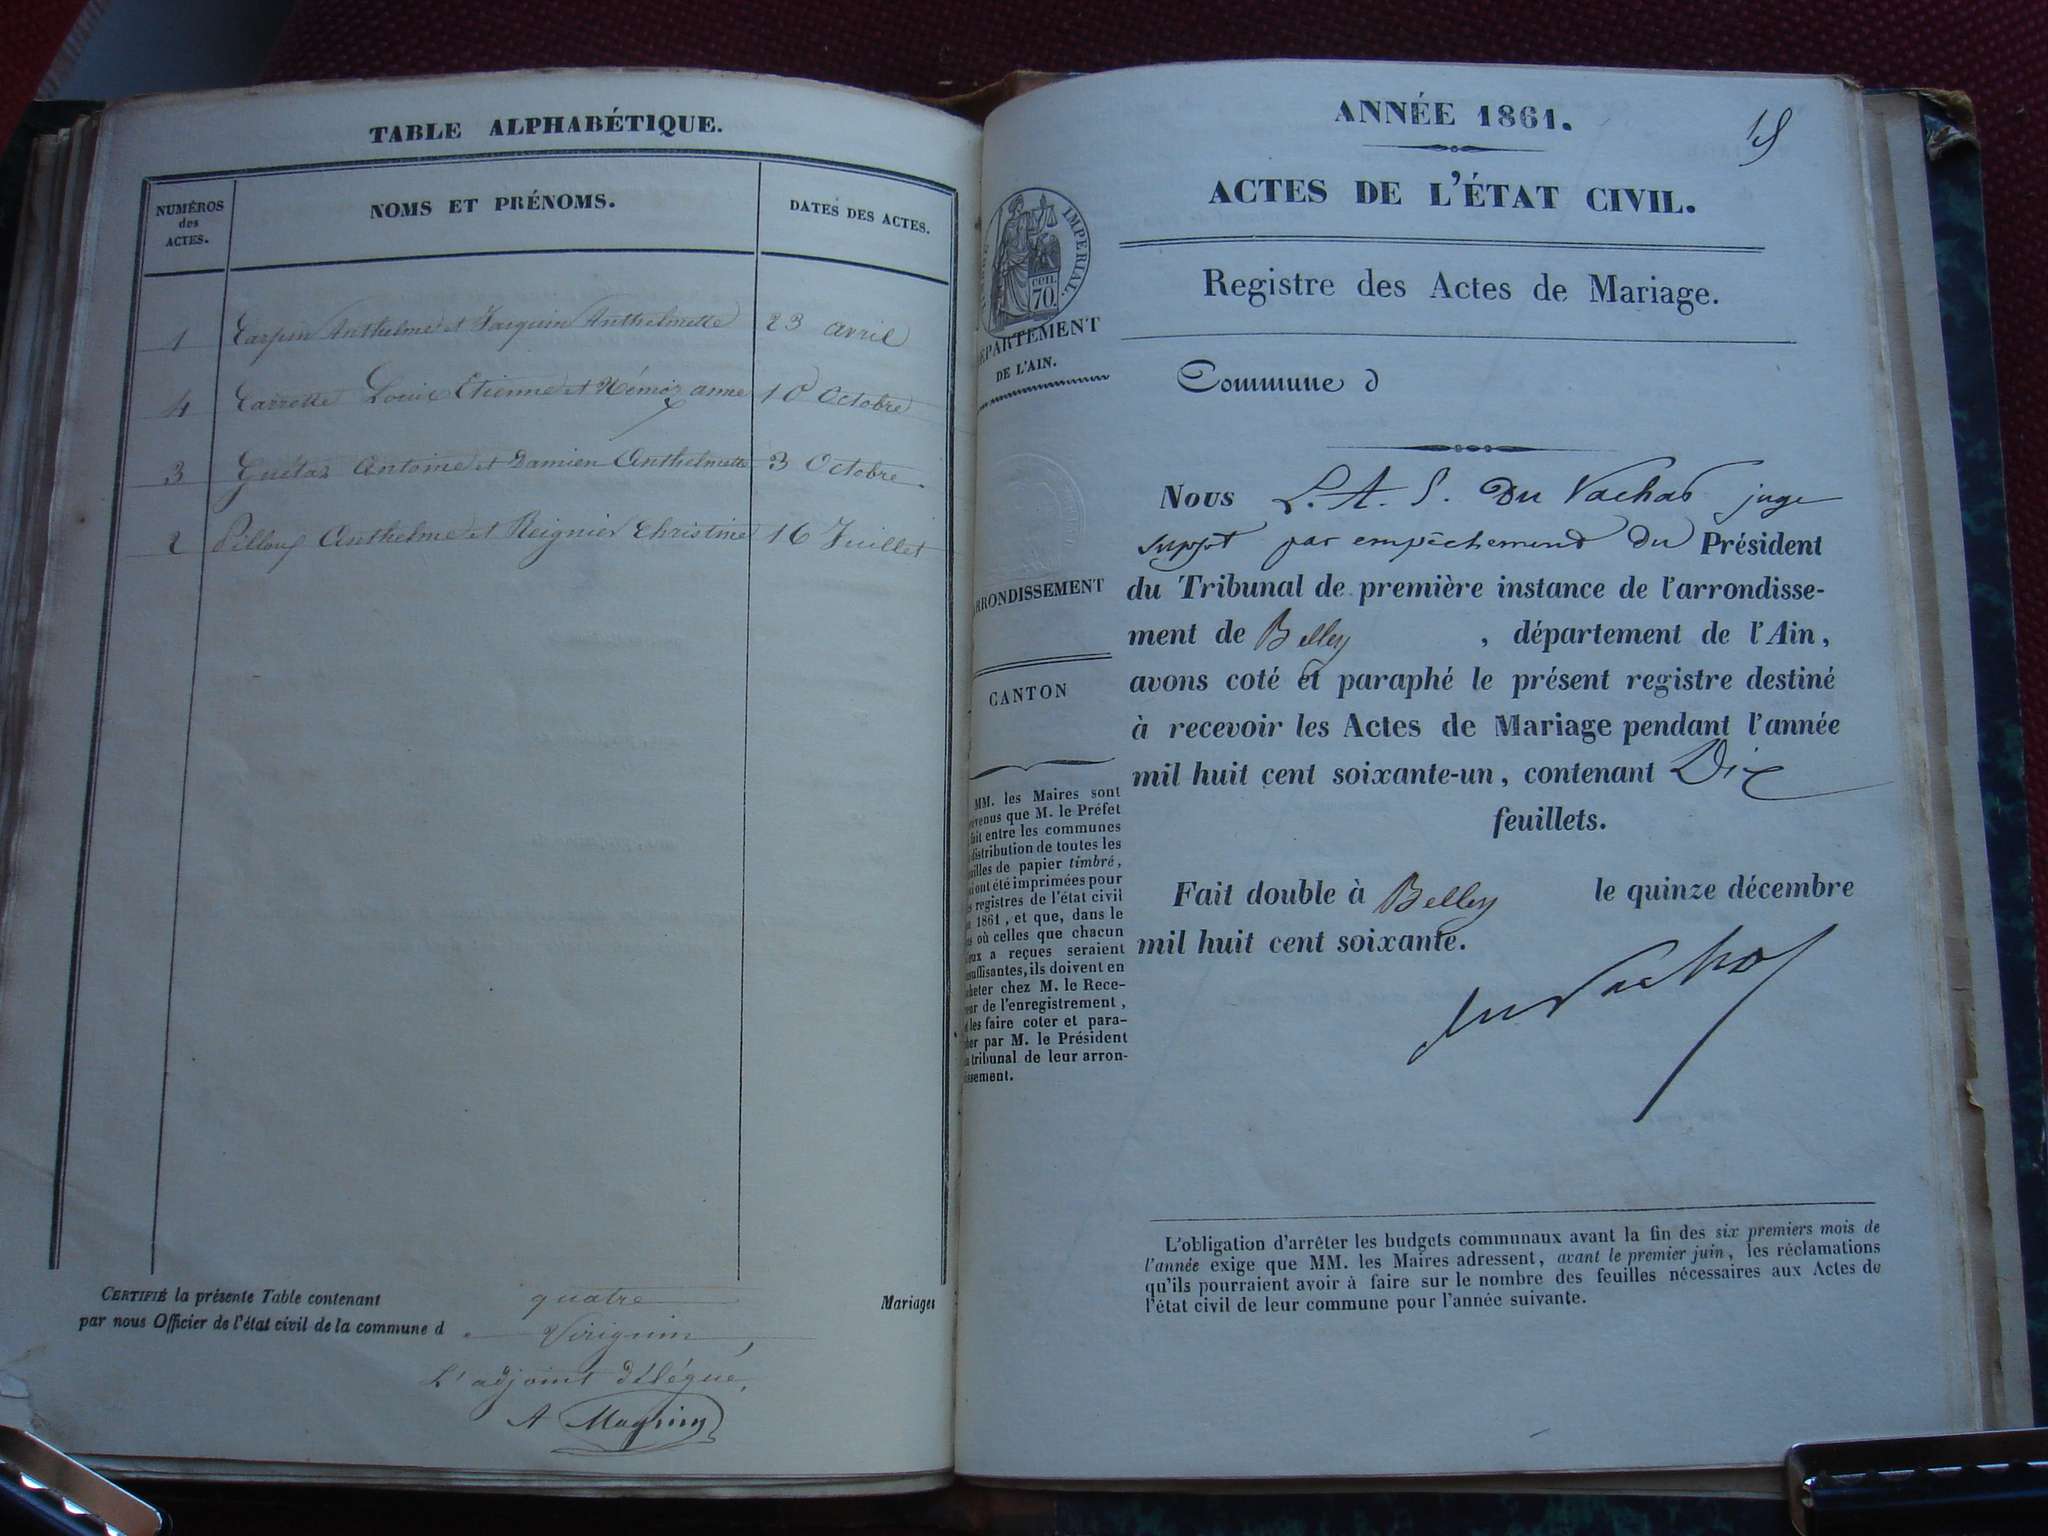 TABLE ALPHABÉTIQUE.
NUMÉROS
des
ACTES.
NOMS ET PRÉNOMS.
DATES DES ACTES.
1 Carpin Anthelme et Jacquin Anthelmette 23 avril
4 Carrette Louis Etienne et Némoz anne 10 Octobre
3 Guétaz Antoine et Damien Anthelmette 3 Octobre
2 Pilloux Anthelme et Reignier Christine 16 Juillet
CERTIFIÉ la présente Table contenant quatre Mariages
par nous Officier de l'état civil de la commune de Virignin,
L'adjoint délégué,
A Magnin
ANNÉE 1861.
ACTES DE L'ÉTAT CIVIL.
IMPERIAL.
CEN.
70.
Registre des Actes de Mariage.
DÉPARTEMENT
DE L'AIN.
Commune d
Nous L. A. S. Du Vachat juge
suppt par empêchement du Président
du Tribunal de première instance de l'arrondisse-
ment de Belley, département de l'Ain,
avons coté et paraphé le présent registre destiné
à recevoir les Actes de Mariage pendant l'année
mil huit cent soixante-un, contenant Dix
feuillets.
Fait double à Belley le quinze décembre
mil huit cent soixante.
Du Vachat
RRONDISSEMENT
CANTON
MM. les Maires sont
évenus que M. le Préfet
fait entre les communes
distribution de toutes les
uilles de papier timbré,
i ont été imprimées pour
s registres de l'état civil
1861, et que, dans le
s où celles que chacun
eux a reçues seraient
suffisantes, ils doivent en
heter chez M. le Rece-
eur de l'enregistrement,
les faire coter et para-
her par M. le Président
tribunal de leur arron-
issement.
L'obligation d'arrêter les budgets communaux avant la fin des six premiers mois de
l'année exige que MM. les Maires adressent, avant le premier juin, les réclamations
qu'ils pourraient avoir à faire sur le nombre des feuilles nécessaires aux Actes de
l'état civil de leur commune pour l'année suivante.